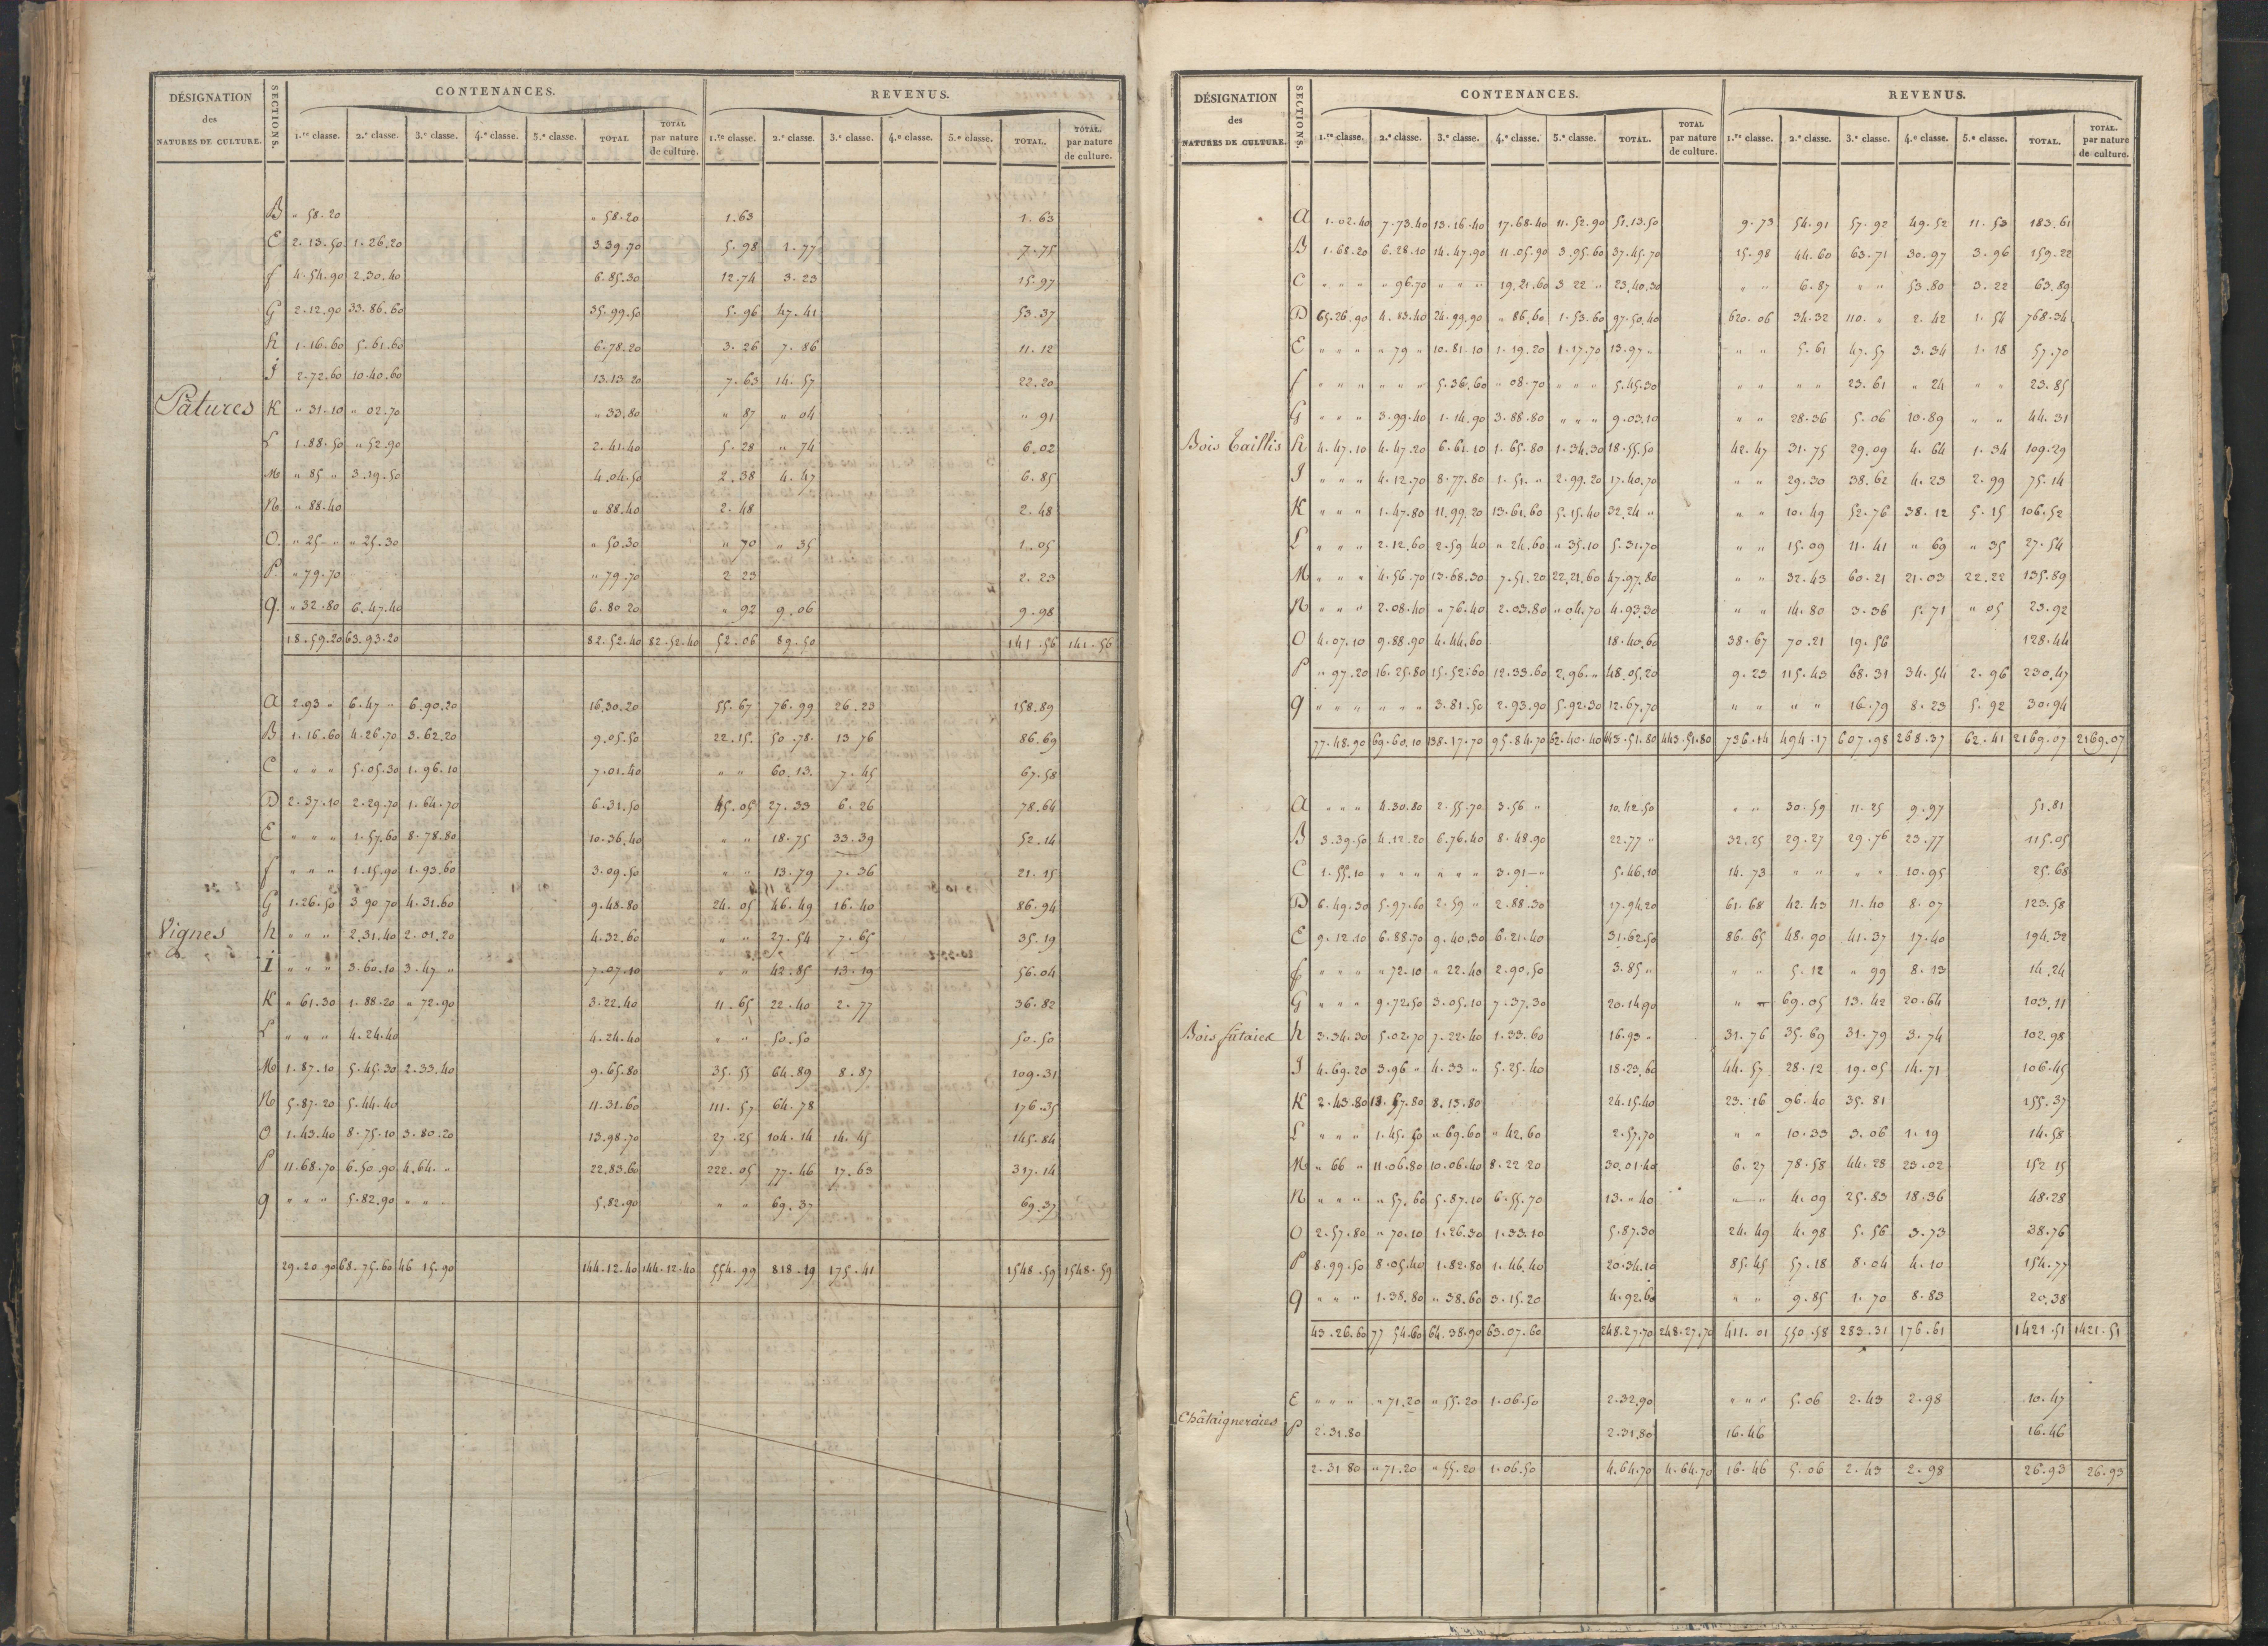 DÉSIGNATION des NATURES DE CULTURE. SECTIONS. CONTENANCES. REVENUS.
1.re classe. 2.e classe. 3.e classe. 4.e classe. 5.e classe. TOTAL TOTAL par nature de culture. 1.re classe. 2.e classe. 3.e classe. 4.e classe. 5.e classe. TOTAL. TOTAL. par nature de culture.
B " 58.20 " 58.20 1.63 1.63
E 2.13.50 1.26.20 3.39.70 5.98 1.77 7.75
f 4.54.90 2.30.40 6.85.30 12.74 3.23 15.97
G 2.12.90 33.86.60 35.99.50 5.96 47.41 53.37
h 1.16.60 5.61.60 6.78.20 3.26 7.86 11.12
j 2.72.60 10.40.60 13.13.20 7.63 14.57 22.20
Pâtures K " 31.10 " 02.70 " 33.80 " 87 " 04 " 91
L 1.88.50 " 52.90 2.41.40 5.28 " 74 6.02
M " 85 " 3.19.50 4.04.50 2.38 4.47 6.85
N " 88.40 " 88.40 2.48 2.48
O. " 25 - " " 25.30 " 50.30 " 70 " 35 1.05
P. " 79.70 " 79.70 2 23 2.23
q. " 32.80 6.47.40 6.80.20 " 92 9.06 9.98
18.59.20 63.93.20 82.52.40 82.52.40 52.06 89.50 141.56 141.56
A 2.93 " 6.47 " 6.90.20 16.30.20 55.67 76.99 26.23 158.89
B 1.16.60 4.26.70 3.62.20 9.05.50 22.15. 50.78. 13.76 86.69
C " " " 5.05.30 1.96.10 7.01.40 " " 60.13. 7.45 67.58
D 2.37.10 2.29.70 1.64.70 6.31.50 45.05 27.33 6.26 78.64
E " " " 1.57.60 8.78.80 10.36.40 " " 18.75 33.39 52.14
f " " " 1.15.90 1.93.60 3.09.50 " " 13.79 7.36 21.15
G 1.26.50 3 90 70 4.31.60 9.48.80 24.05 46.49 16.40 86.94
Vignes h " " " 2.31.40 2.01.20 4.32.60 " " 27.54 7.65 35.19
i " " " 3.60.10 3.47 " 7.07.10 " " 42.85 13.19 56.04
K " 61.30 1.88.20 " 72.90 3.22.40 11.65 22.40 2.77 36.82
L " " " 4.24.40 4.24.40 " " 50.50 50.50
M 1.87.10 5.45.30 2.33.40 9.65.80 35.55 64.89 8.87 109.31
N 5.87.20 5.44.40 11.31.60 111.57 64.78 176.35
O 1.43.40 8.75.10 3.80.20 13.98.70 27.25 104.14 14.45 145.84
P 11.68.70 6.50.90 4.64. " 22.83.60 222.05 77.46 17.63 317.14
q " " " 5.82.90 " " 5.82.90 " " 69.37 69.37
29.20.90 68.75.60 46 15.90 144.12.40 144.12.40 554.99 818.19 175.41 1548.59 1548.59
DÉSIGNATION des NATURES DE CULTURE. SECTIONS. CONTENANCES. REVENUS.
1.re classe. 2.e classe. 3.e classe. 4.e classe. 5.e classe. TOTAL. TOTAL par nature de culture. 1.re classe. 2.e classe. 3.e classe. 4.e classe. 5.e classe. TOTAL. TOTAL. par nature de culture.
A 1.02.40 7.73.40 13.16.40 17.68.40 11.52.90 51.13.50 9.73 54.91 57.92 49.52 11.53 183.61
B 1.68.20 6.28.10 14.47.90 11.05.90 3.95.60 37.45.70 15.98 44.60 63.71 30.97 3.96 159.22
C " " " " 96.70 " " " 19.21.60 3 22 " 23.40.30 " " 6.87 " " 53.80 3.22 63.89
D 65.26.90 4.83.40 24.99.90 " 86.60 1.53.60 97.50.40 620.06 34.32 110. " 2.42 1.54 768.34
E " " " " 79 " 10.81.10 1.19.20 1.17.70 13.97 " " " 5.61 47.57 3.34 1.18 57.70
f " " " " " " 5.36.60 " 08.70 " " " 5.45.30 " " " " 23.61 " 24 " " 23.85
G " " " 3.99.40 1.14.90 3.88.80 " " " 9.03.10 " " 28.36 5.06 10.89 " " 44.31
Bois Taillis h 4.47.10 4.47.20 6.61.10 1.65.80 1.34.30 18.55.50 42.47 31.75 29.09 4.64 1.34 109.29
J " " " 4.12.70 8.77.80 1.51. " 2.99.20 17.40.70 " " 29.30 38.62 4.23 2.99 75.14
K " " " 1.47.80 11.99.20 13.61.60 5.15.40 32.24 " " " 10.49 52.76 38.12 5.15 106.52
L " " " 2.12.60 2.59 40 " 24.60 " 35.10 5.31.70 " " 15.09 11.41 " 69 " 35 27.54
M " " " 4.56.70 13.68.30 7.51.20 22.21.60 47.97.80 " " 32.43 60.21 21.03 22.22 135.89
N " " " 2.08.40 " 76.40 2.03.80 " 04.70 4.93.30 " " 14.80 3.36 5.71 " 05 23.92
O 4.07.10 9.88.90 4.44.60 18.40.60 38.67 70.21 19.56 128.44
P " 97.20 16.25.80 15.52.60 12.33.60 2.96. " 48.05.20 9.23 115.43 68.31 34.54 2.96 230.47
q " " " " " " 3.81.50 2.93.90 5.92.30 12.67.70 " " " " 16.79 8.23 5.92 30.94
77.48.90 69.60.10 138.17.70 95.84.70 62.40.40 443.51.80 443.51.80 736.14 494.17 607.98 268.37 62.41 2169.07 2169.07
A " " " 4.30.80 2.55.70 3.56 " 10.42.50 " " 30.59 11.25 9.97 51.81
B 3.39.50 4.12.20 6.76.40 8.48.90 22.77 " 32.25 29.27 29.76 23.77 115.05
C 1.55.10 " " " " " " 3.91 - " 5.46.10 14.73 " " " " 10.95 25.68
D 6.49.30 5.97.60 2.59 " 2.88.30 17.94.20 61.68 42.43 11.40 8.07 123.58
E 9.12.10 6.88.70 9.40.30 6.21.40 31.62.50 86.65 48.90 41.37 17.40 194.32
f " " " " 72.10 " 22.40 2.90.50 3.85 " " " 5.12 " 99 8.13 14.24
G " " " 9.72.50 3.05.10 7.37.30 20.14.90 " " 69.05 13.42 20.64 103.11
Bois futaies h 3.34.30 5.02.70 7.22.40 1.33.60 16.93 " 31.76 35.69 31.79 3.74 102.98
J 4.69.20 3.96 " 4.33 " 5.25.40 18.23.60 44.57 28.12 19.05 14.71 106.45
K 2.43.80 13.57.80 8.13.80 24.15.40 23.16 96.40 35.81 155.37
L " " " 1.45.50 " 69.60 " 42.60 2.57.70 " " 10.33 3.06 1.19 14.58
M " 66 " 11.06.80 10.06.40 8.22 20 30.01.40 6.27 78.58 44.28 23.02 152.15
N " " " " 57.60 5.87.10 6.55.70 13. " 40 " " 4.09 25.83 18.36 48.28
O 2.57.80 " 70.10 1.26.30 1.33.10 5.87.30 24.49 4.98 5.56 3.73 38.76
P 8.99.50 8.05.40 1.82.80 1.46.40 20.34.10 85.45 57.18 8.04 4.10 154.77
q " " " 1.38.80 " 38.60 3.15.20 4.92.60 " " 9.85 1.70 8.83 20.38
43.26.60 77 54.60 64.38.90 63.07.60 248.27.70 248.27.70 411.01 550.58 283.31 176.61 1421.51 1421.51
E " " " " 71.20 " 55.20 1.06.50 2.32.90 " " " 5.06 2.43 2.98 10.47
Châtaigneraies P 2.31.80 2.31.80 16.46 16.46
2.31 80 " 71.20 " 55.20 1.06.50 4.64.70 4.64.70 16.46 5.06 2.43 2.98 26.93 26.93